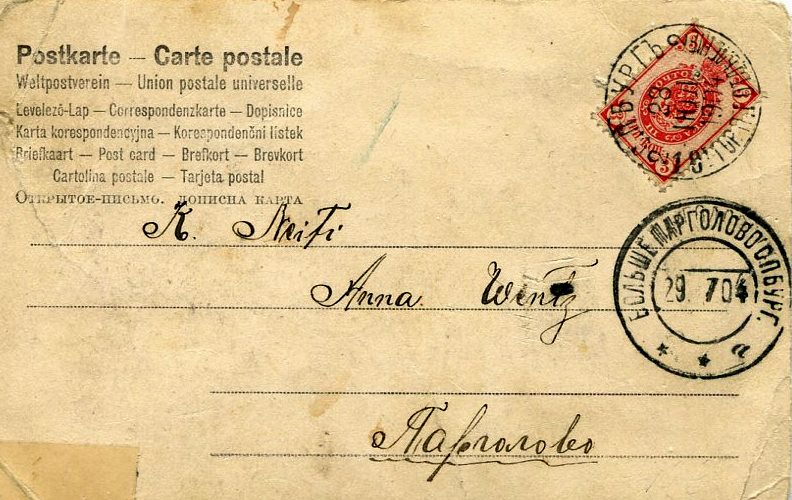 Postkarte — Carte postale
Weltpostverein — Union postale universelle
Levelező-Lap — Correspondenzkarte — Dopisnice
Karta korespondencyjna — Korespondenční lístek
Briefkaart — Post card — Brefkort — Brevkort
Cartolina postale — Tarjeta postal
Открытое-письмо. дописна карта
K.
Anna Wentz
Парголово
БОЛЬШЕ ПАРГОЛОВО
29. 7 04